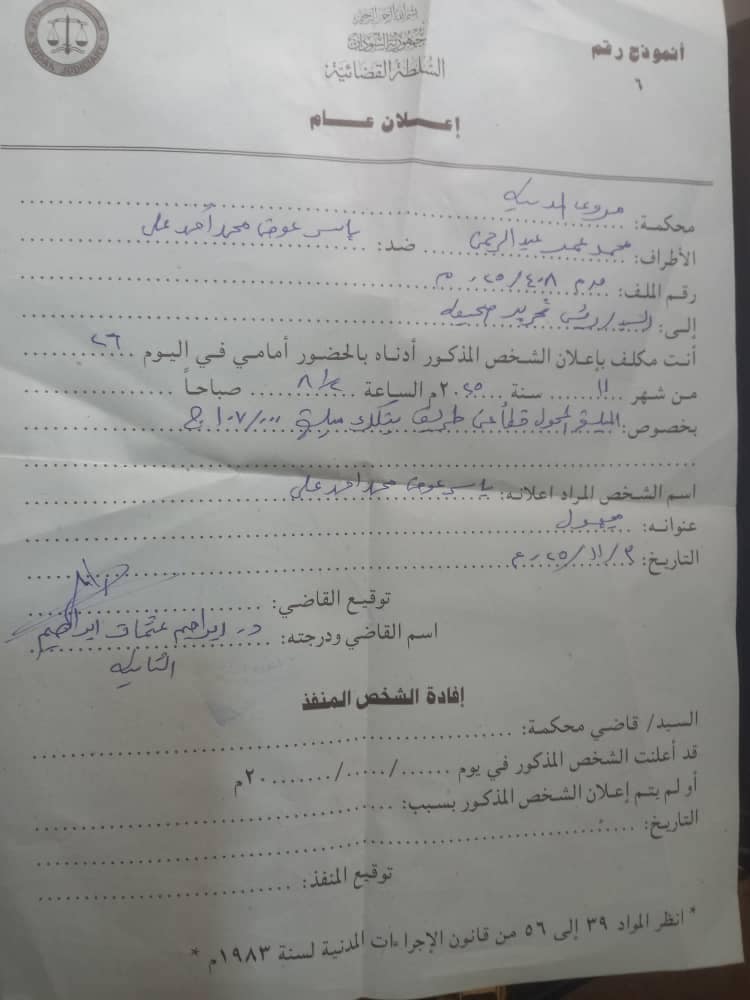 بسم الله الرحمن الرحيم
جمهورية السودان
السلطة القضائية
SUDAN JUDICIARY
أنموذج رقم
٦
إعـــلان عـــام
محكمة: مروي المدنية
الأطراف: محمد محمد عبد الرحمن ضد: ياسر عوض محمد أحمد علي
رقم الملف: ق م / ٤٠٨ / ٢٠٢٥م
إلى: السيد / رئيس تحرير صحيفة
أنت مكلف بإعلان الشخص المذكور أدناه بالحضور أمامي في اليوم ٢٦
من شهر ١١ سنة ٢٠٢٥م الساعة ٨ صباحاً
بخصوص: المبلغ المحول خطأ عن طريق بنكك مبلغ ١٠٧/٠٠٠ ج
اسم الشخص المراد اعلانه: ياسر عوض محمد احمد علي
عنوانه: مجهول
التاريخ: ٢٥/١١/٣م
توقيع القاضي:
اسم القاضي ودرجته: د. ابراهيم عثمان ابراهيم
الثانية
إفادة الشخص المنفذ
السيد/ قاضي محكمة:
قد أعلنت الشخص المذكور في يوم ....../....../........٢٠م
أو لم يتم إعلان الشخص المذكور بسبب:
التاريخ:
توقيع المنفذ:
* انظر المواد ٣٩ إلى ٥٦ من قانون الإجراءات المدنية لسنة ١٩٨٣م *